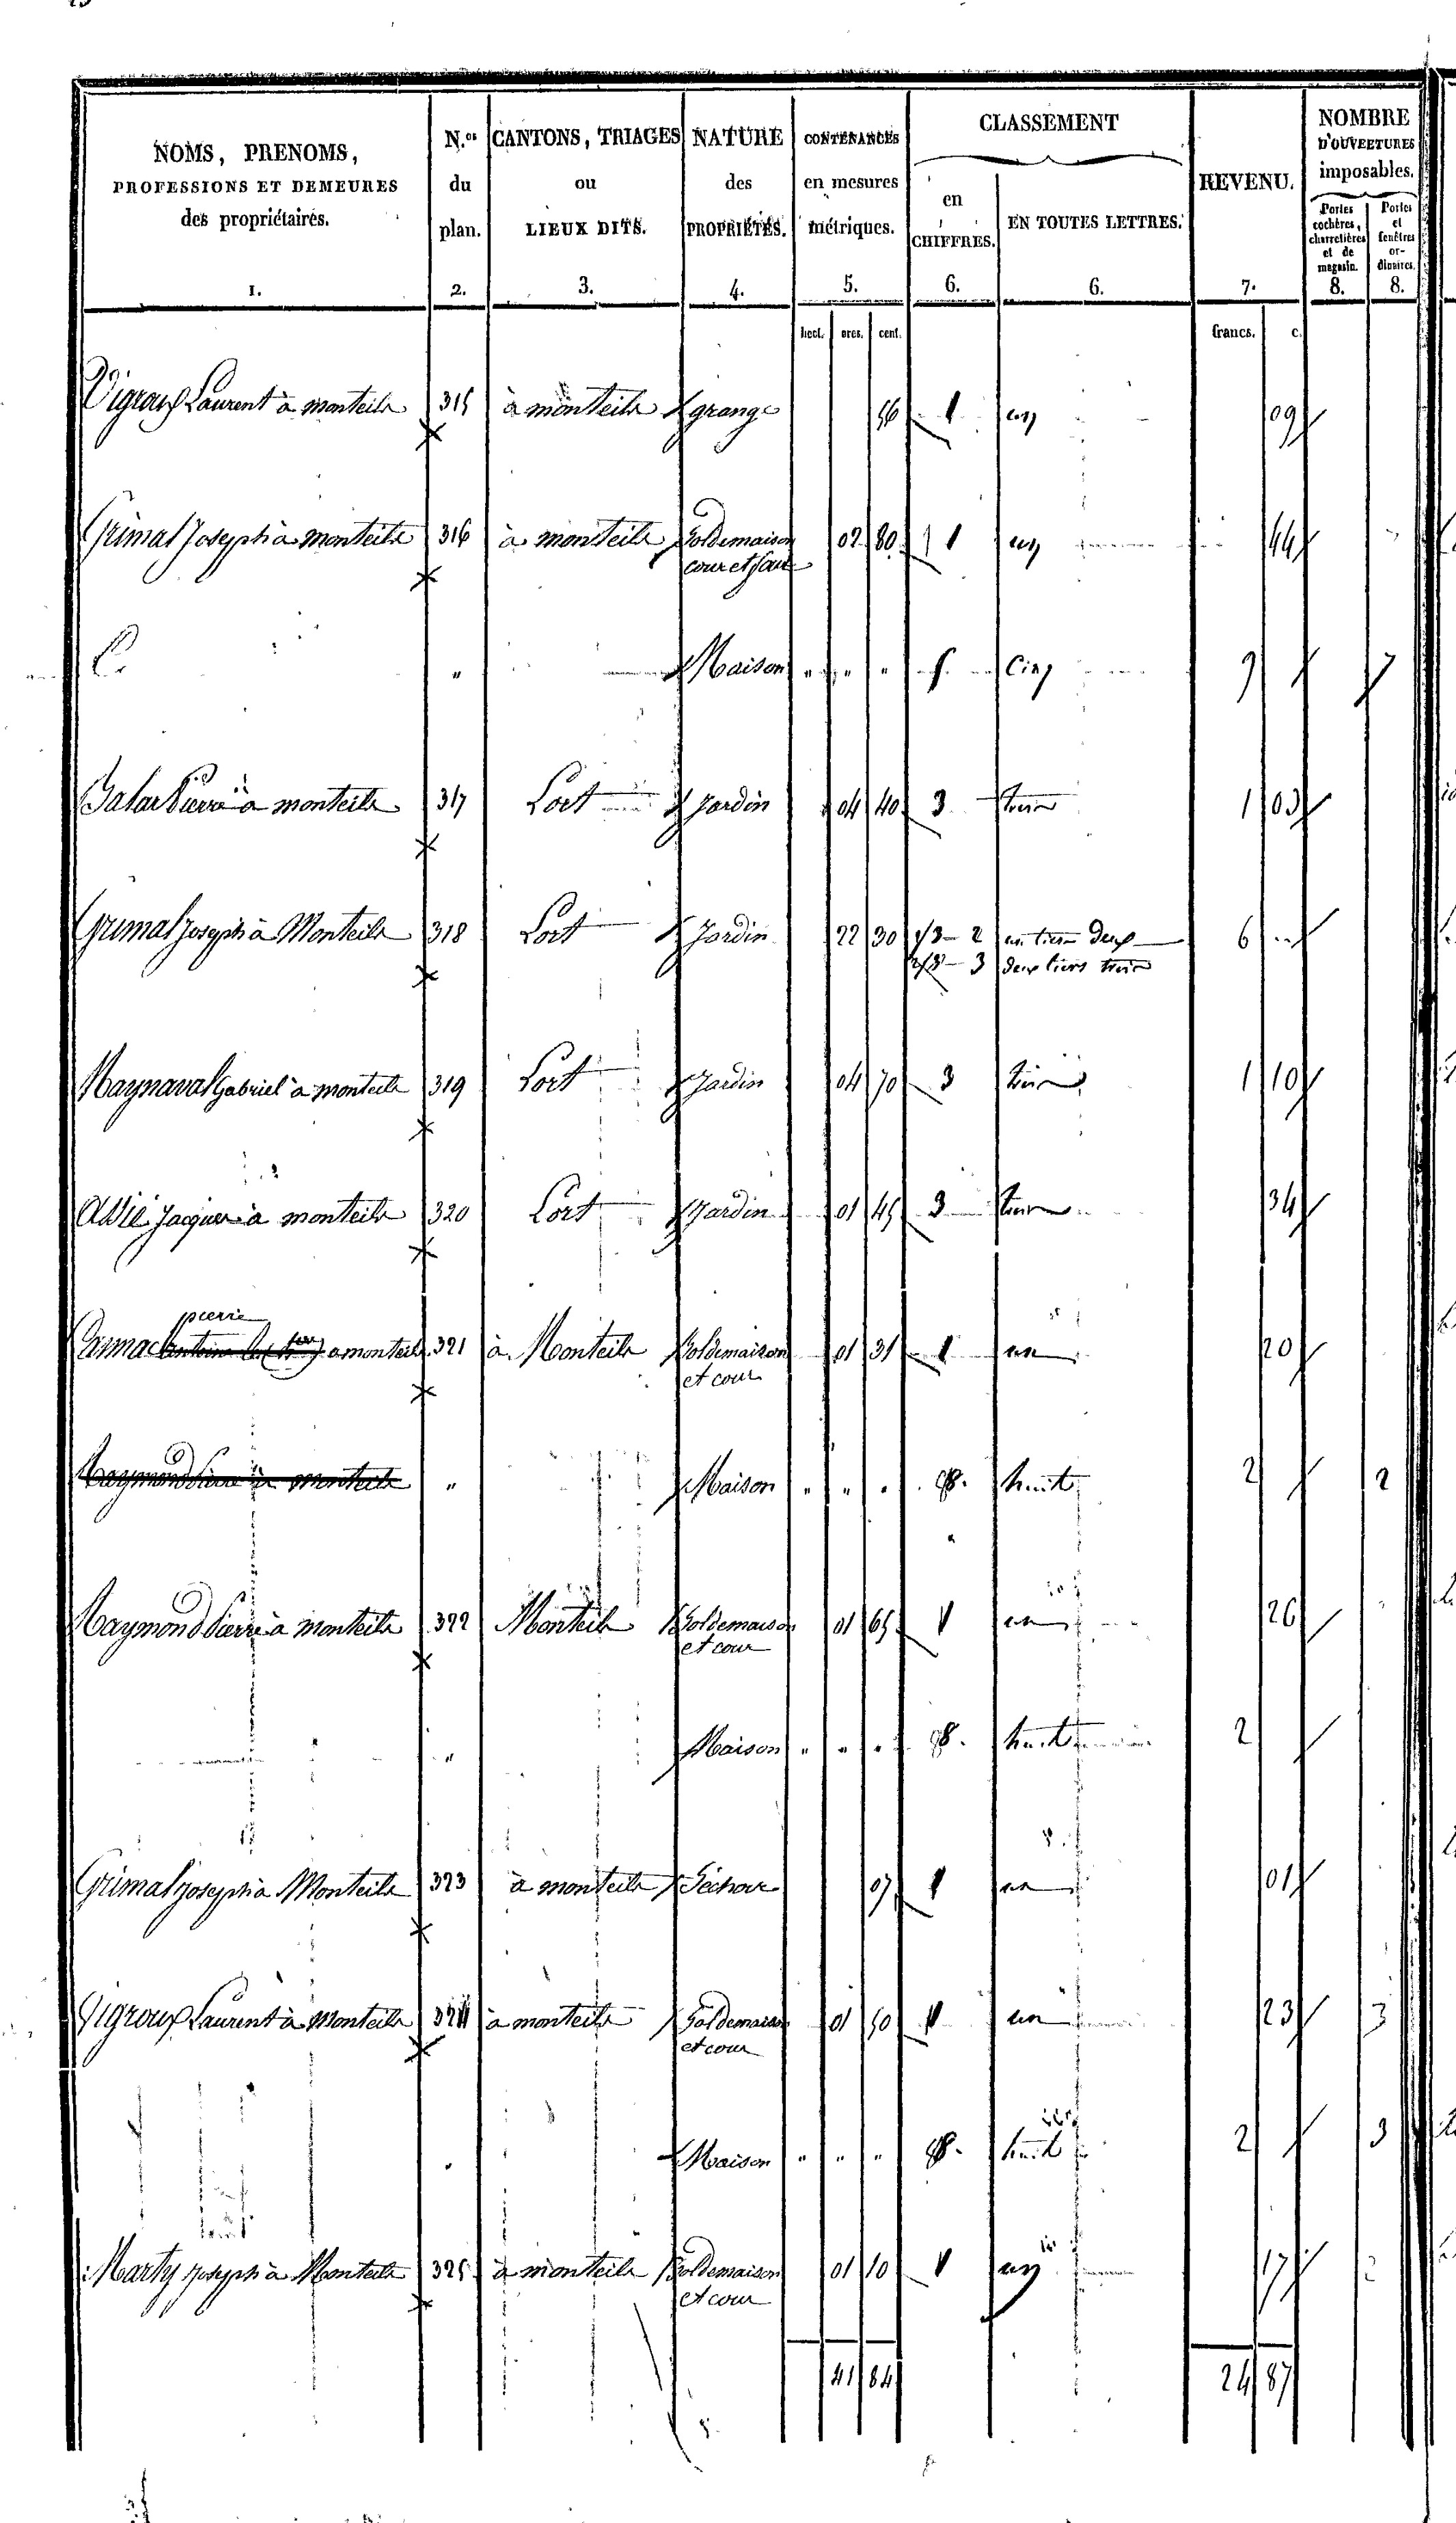 NOMS, PRENOMS, PROFESSIONS ET DEMEURES des propriétaires. 1.
N.os du plan. 2.
CANTONS, TRIAGES ou LIEUX DITS. 3.
NATURE des PROPRIÉTÉS. 4.
CONTENANCES en mesures métriques. 5.
CLASSEMENT
en CHIFFRES. 6.
EN TOUTES LETTRES. 6.
REVENU. 7.
NOMBRE D'OUVERTURES imposables.
Portes cochères, charretières et de magasin. 8.
Portes et fenêtres ordinaires. 8.
hect. ares. cent. francs. c.
Vigroux Laurent à monteils 315 à monteils grange 56 1 un 09
Grimal Joseph à monteils 316 à monteils Sol de maison 02 80 1 un 44
cour et
" Maison " " " 5. Cinq 9 7
Pierre à monteils 317 Lort Jardin 04 40 3 trois 1 03
Grimal Joseph à Monteils 318 Lort Jardin 22 30 1/3 - 2 un tiers deux 6 "
2/3 - 3 deux tiers trois
Raynaval Gabriel à monteils 319 Lort Jardin 04 70 3 trois 1 10
Jacques à monteils 320 Lort Jardin 01 45 3 trois 34
pierre
Cirmac à monteils 321 à Monteils Sol de maison 01 31 1 un 20
et cour
Raymond Pierre à monteils " Maison " " " 8. huit 2 2
Raymond Pierre à monteils 322 Monteils Sol de maison 01 65 1 un 26
et cour
" Maison " " " 8. huit 2
Grimal Joseph à Monteils 323 à monteils Séchoir 07 1 un 01
Vigroux Laurent à Monteils 324 à monteils Sol de maison 01 50 1 un 23 3
et cour
" Maison " " " 8. huit 2 3
Marty Joseph à Monteils 325 à monteils Sol de maison 01 10 1 un 17
et cour
41 84 24 87